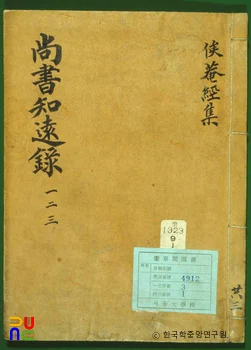 俟菴經集
尚書知遠錄 一二三
1323
9
1
4912
3
1
共二
ⓒ 한국학중앙연구원